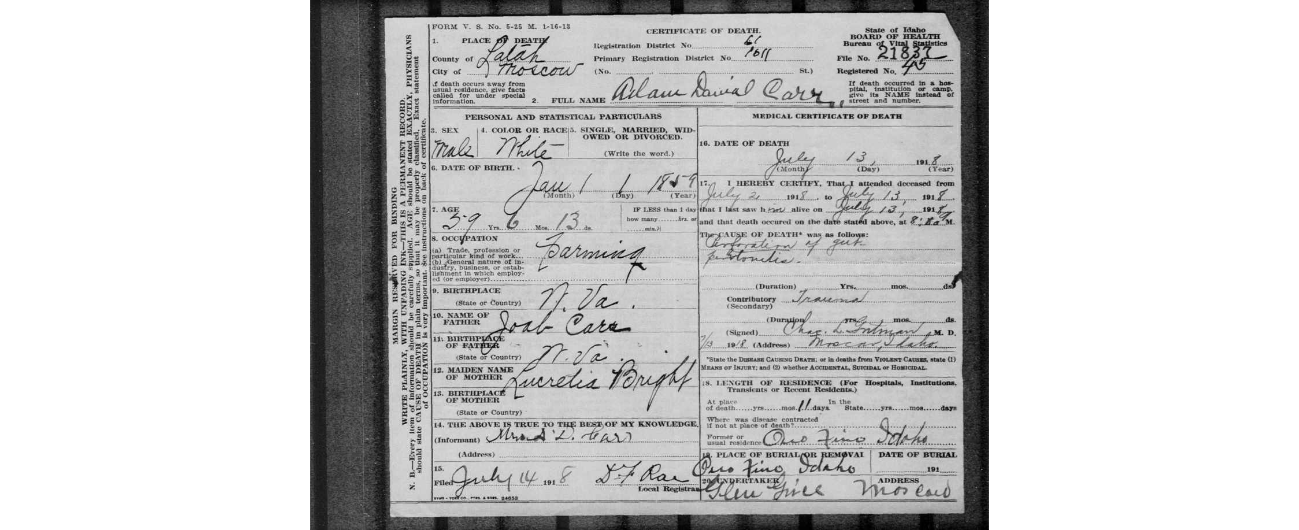 FORM V. S. No. 5-25 M. 1-16-12
CERTIFICATE OF DEATH.
State of Idaho
BOARD OF HEALTH
Bureau of Vital Statistics
File No. 21837
Registered No. 45
1. PLACE OF DEATH
County of Latah
City of Moscow
Registration District No 61
Primary Registration District No 1011
(No. St.)
If death occurs away from
usual residence, give facts
called for under special
information.
If death occurred in a hos-
pital, institution or camp,
give its NAME instead of
street and number.
2. FULL NAME Adam David Carr
MARGIN RESERVED FOR BINDING
WRITE PLAINLY, WITH UNFADING INK—THIS IS A PERMANENT RECORD.
N. B.—Every item of information should be carefully supplied. AGE should be stated EXACTLY, PHYSICIANS
should state CAUSE OF DEATH in plain terms, so that it may be properly classified. Exact statement
of OCCUPATION is very important. See instructions on back of certificate.
PERSONAL AND STATISTICAL PARTICULARS
3. SEX
Male
4. COLOR OR RACE
White
5. SINGLE, MARRIED, WID-
OWED OR DIVORCED.
(Write the word.)
6. DATE OF BIRTH.
Jan 1 1859
(Month) (Day) (Year)
7. AGE
59 Yrs. 6 mos. 13 ds.
IF LESS than 1 day
how many hrs. or
min.?
8. OCCUPATION
(a) Trade, profession or
particular kind of work
(b) General nature of in-
dustry, business, or estab-
lishment in which employ-
ed (or employer)
Farming
9. BIRTHPLACE
(State or Country) W. Va.
10. NAME OF
FATHER Joab Carr
11. BIRTHPLACE
OF FATHER
(State or Country) W. Va.
12. MAIDEN NAME
OF MOTHER Lucretia Bright
13. BIRTHPLACE
OF MOTHER
(State or Country)
14. THE ABOVE IS TRUE TO THE BEST OF MY KNOWLEDGE,
(Informant) Mrs D. Carr
(Address)
15.
Filed July 14 1918 D. F. Rae
Local Registrar
MEDICAL CERTIFICATE OF DEATH
16. DATE OF DEATH
July 13, 1918
(Month) (Day) (Year)
17. I HEREBY CERTIFY, That I attended deceased from
July 2 1918. to July 13 1918.
that I last saw him alive on July 13, 1918
and that death occured on the date stated above, at M.
The CAUSE OF DEATH* was as follows:
Perforation of gut
peritonitis.
(Duration) Yrs. mos. ds
Contributory Trauma
(Secondary)
(Duration) yrs. mos. ds.
(Signed) Chas. L. Gritman M. D.
7/13 1918 (Address) Moscow, Idaho.
*State the DISEASE CAUSING DEATH; or in deaths from VIOLENT CAUSES, state (1)
MEANS OF INJURY; and (2) whether ACCIDENTAL, SUICIDAL OR HOMICIDAL.
18. LENGTH OF RESIDENCE (For Hospitals, Institutions,
Transients or Recent Residents.)
At place In the
of death yrs. mos. 11 days State yrs. mos. days
Where was disease contracted
if not at place of death?
Former or
usual residence Oro Fino Idaho
19. PLACE OF BURIAL OR REMOVAL
Oro Fino, Idaho
DATE OF BURIAL
191
20. UNDERTAKER
Glen Grice
ADDRESS
Moscow